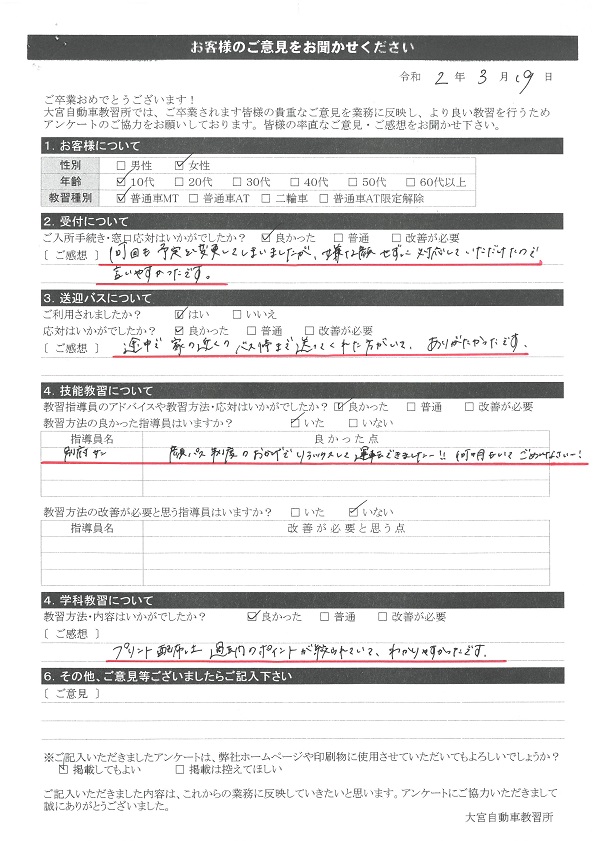 お客様のご意見をお聞かせください
令和 2 年 3 月 19 日
ご卒業おめでとうございます！
大宮自動車教習所では、ご卒業されます皆様の貴重なご意見を業務に反映し、より良い教習を行うため
アンケートのご協力をお願いしております。皆様の率直なご意見・ご感想をお聞かせ下さい。
1. お客様について
性別 □ 男性 ☑ 女性
年齢 ☑ 10代 □ 20代 □ 30代 □ 40代 □ 50代 □ 60代以上
教習種別 ☑ 普通車MT □ 普通車AT □ 二輪車 □ 普通車AT限定解除
2. 受付について
ご入所手続き・窓口応対はいかがでしたか？ ☑ 良かった □ 普通 □ 改善が必要
[ ご感想 ] 何回も予定を変更してしまいましたが、嫌な顔せずに対応していただけたので
言いやすかったです。
3. 送迎バスについて
ご利用されましたか？ ☑ はい □ いいえ
応対はいかがでしたか？ ☑ 良かった □ 普通 □ 改善が必要
[ ご感想 ] 途中で家の近くのバス停まで送ってくれた方がいて、ありがたかったです.
4. 技能教習について
教習指導員のアドバイスや教習方法・応対はいかがでしたか？ ☑ 良かった □ 普通 □ 改善が必要
教習方法の良かった指導員はいますか？ ☑ いた □ いない
指導員名 良かった点
別府サン 顔パス制度のおかげでリラックスして運転できましたー!!
教習方法の改善が必要と思う指導員はいますか？ □ いた ☑ いない
指導員名 改善が必要と思う点
4. 学科教習について
教習方法・内容はいかがでしたか？ ☑ 良かった □ 普通 □ 改善が必要
[ ご感想 ]
プリント配布は のポイントが絞られていて、わかりやすかったです.
6. その他、ご意見等ございましたらご記入下さい
[ ご意見 ]
※ご記入いただきましたアンケートは、弊社ホームページや印刷物に使用させていただいてもよろしいでしょうか？
☑ 掲載してもよい □ 掲載は控えてほしい
ご記入いただきました内容は、これからの業務に反映していきたいと思います。アンケートにご協力いただきまして
誠にありがとうございました。
大宮自動車教習所